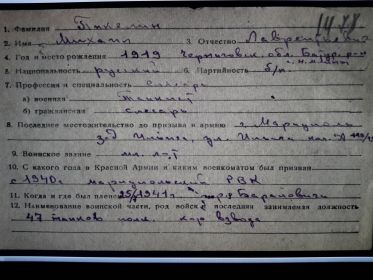 1. Фамилия Пикелин
2. Имя Михаил 3. Отчество Лаврентьевич
4. Год и место рождения 1919 Черниговск. обл.
5. Национальность русский 6. Партийность б/п
7. Профессия и специальность слесарь
а) военная танкист
б) гражданская слесарь
8. Последнее местожительство до призыва в армию г. Мариуполь
зд Ильича, ул. Ильича
9. Воинское звание мл. л-т
10. С какого года в Красной Армии и каким военкоматом был призван
с 1940 г мариупольский РВК
11. Когда и где был пленен 25/VI 1941 г Барановичи
12. Наименование воинской части, род войск и последняя занимаемая должность
47 танков полк ком взвода